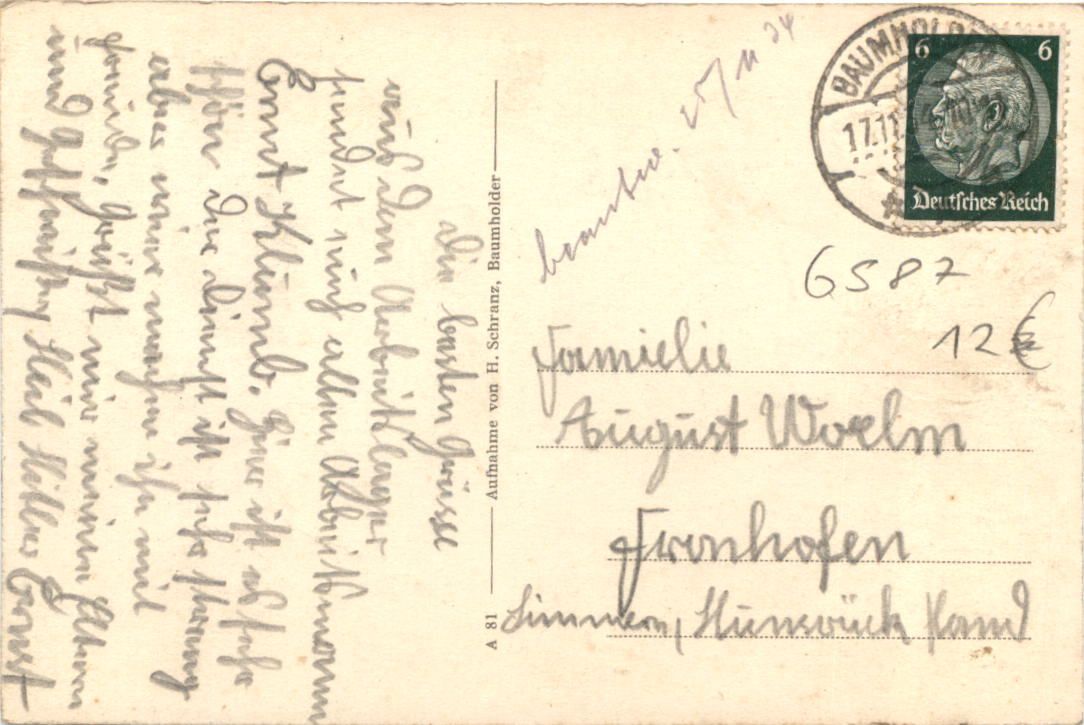 Die besten Grüsse
aus dem Arbeitslager
sendet euch allen Arbeitsmann
Ernst Klumb. Hier ist es sehr
schön der Dienst ist sehr streng
aber wir machen ihn mit
Freude, grüßt mir meine Eltern
und Geschwister Heil Hitler Ernst
A 81 Aufnahme von H. Schranz, Baumholder
beantw. 25/11 34
BAUMHOLDER
17.11.
6 6
Deutsches Reich
6587
12 €
Familie
August Woelm
Fronhofen
Simmern, Hunsrück Land